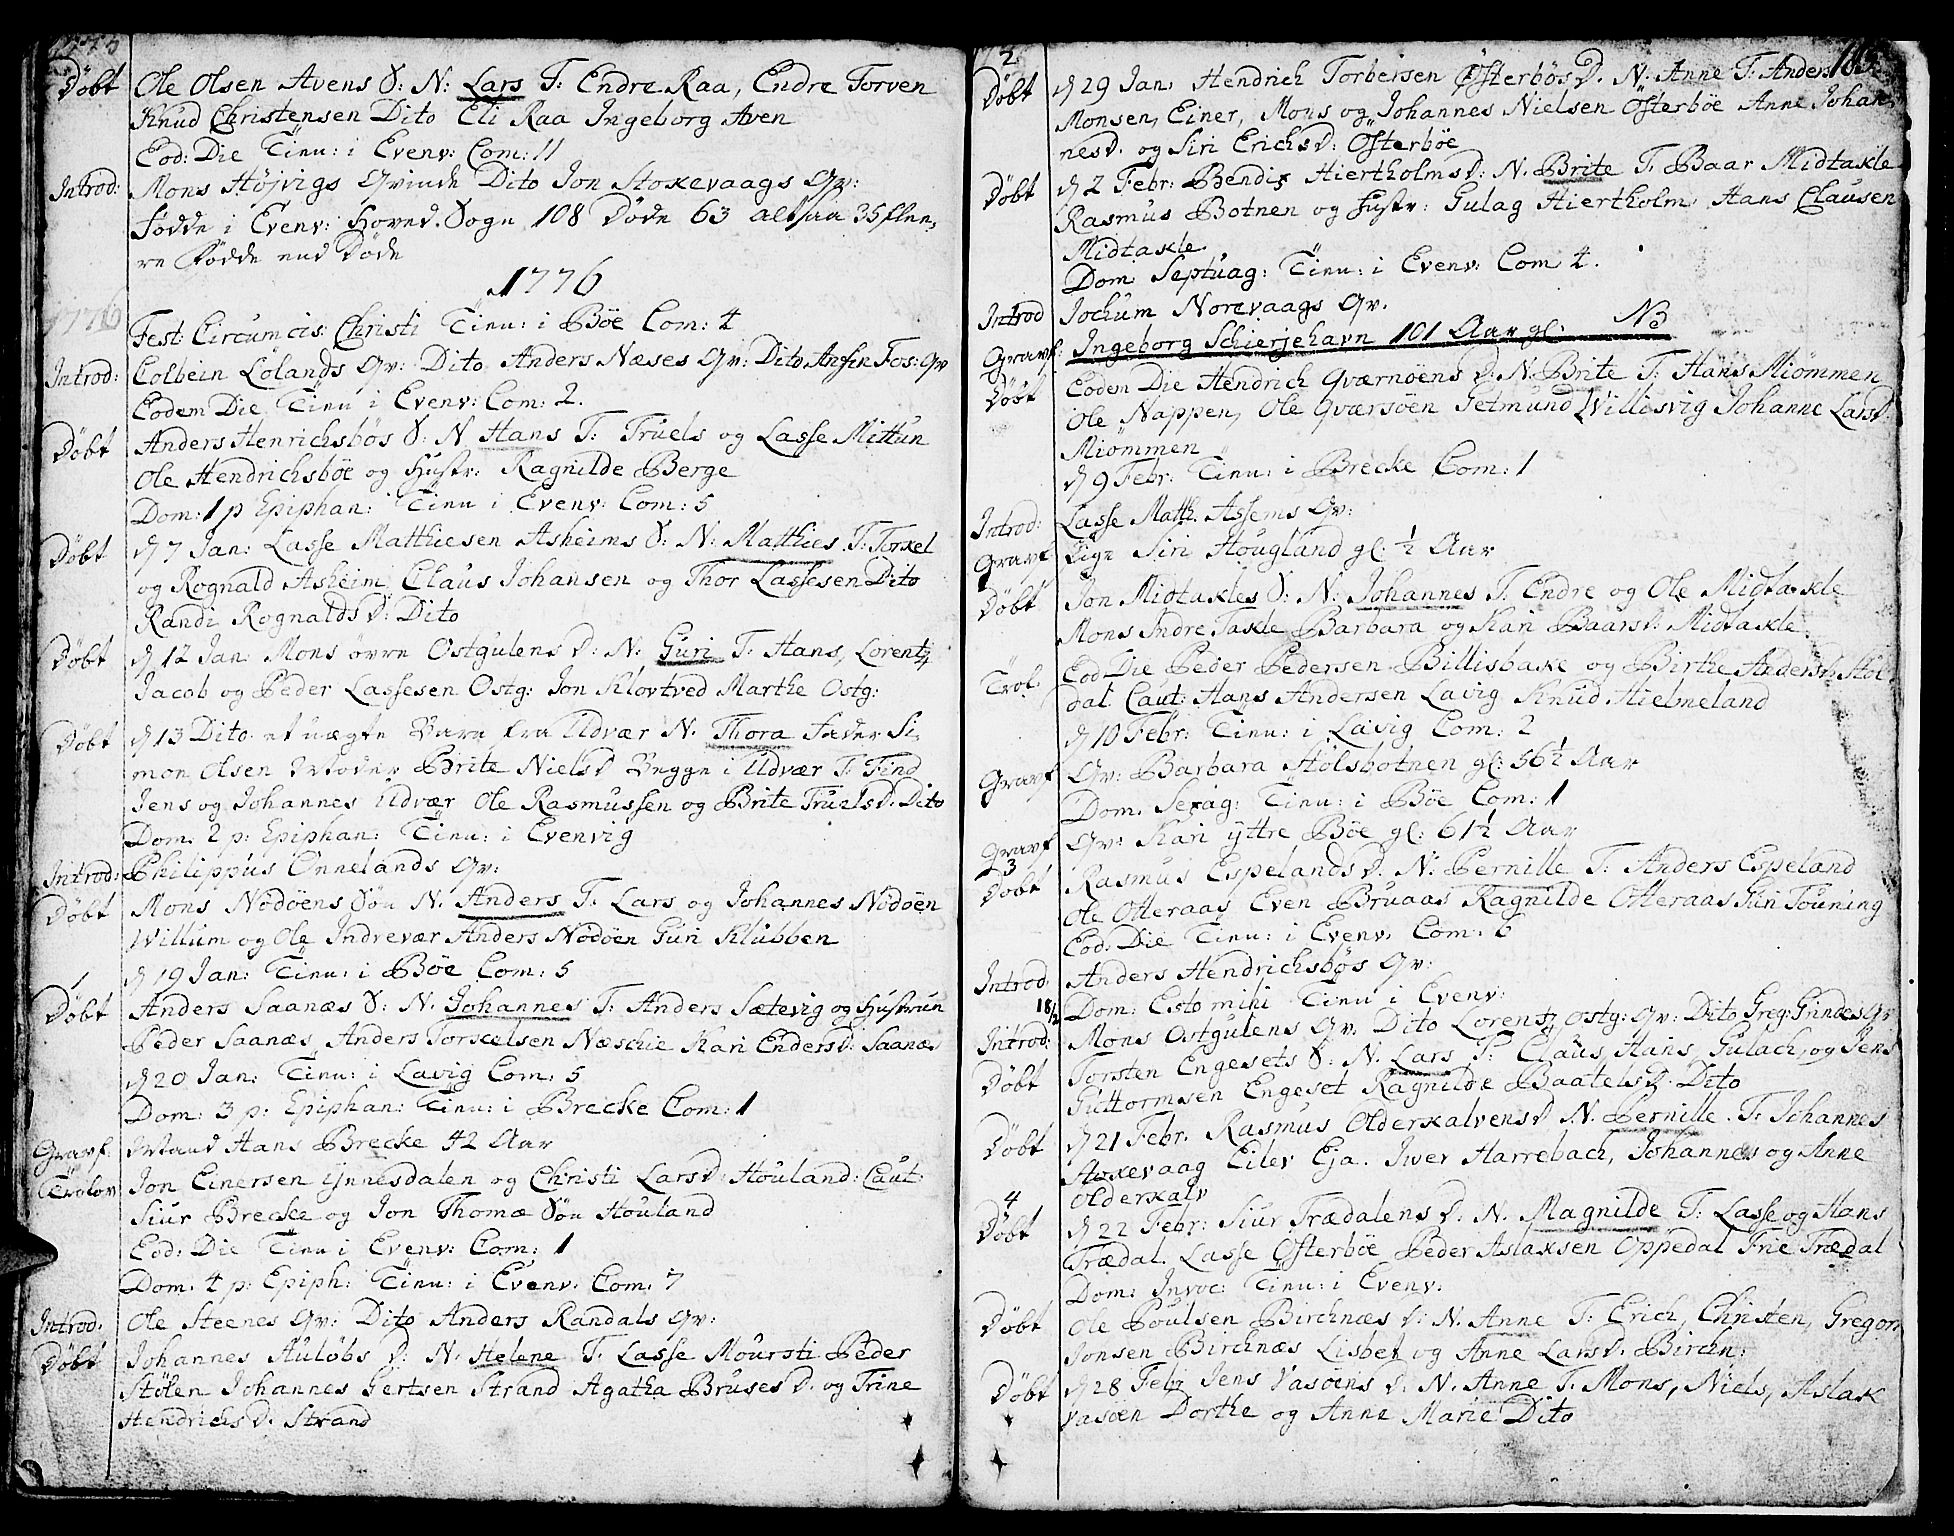 1775
Døbt Ole Olsen Avens S: N: Lars T: Endre Raa, Endre Torven
Knud Christensen Dito Eli Raa Ingeborg Aven
Eod: Die Tien: i Evenv: Com: 11
Introd: Mons Højvigs Qvinde Dito Jon Stokevaags Qv:
Fødde i Evenv: Hoved Sogn 108 Døde 63 altsaa 35 flee,,
re Fødde end Døde
1776
1776
Fest: Circumcis: Christi Tien: i Bøe Com: 4
Introd: Colbein Lølands Qv: Dito Anders Næses Qv: Dito Ansin Fos: Qv
Eodem Die Tien i Evenv: Com: 2.
Døbt Anders Henrichsbøs S: N Hans T: Truels og Lasse Mittun
Ole Hendrichsbøe og Hustr: Ragnilde Berge
Dom: 1 p Epiphan: Tien i Evenv: Com: 5
Døbt d 7 Jan: Lasse Matthiesen Asheims S: N: Matthies T: Torkel
og Rognald Asheim Claus Johansen og Thor Lassesen Dito
Randi Rognalds D: Dito
Døbt d 12 Jan: Mons øvre Ostgulens D: N: Guri T: Hans, Lorentz
Jacob og Peder Lassesen Ostg: Jon Klovtved Marthe Ostg:
Døbt d 13 Dito et uægte Barn fra Udvær N. Thora Fader Si,,
mon Olsen Moder Brite Niels D Begge i Udvær T: Find
Jens og Johannes Udvær Ole Rasmussen og Brite Truels D. Dito
Dom: 2 p: Epiphan: Tien: i Evenvig
Introd: Philippus Onnelands Qv:
Døbt Mons Nodøens Søn N. Anders T. Lars og Johannes Nodøen
Willum og Ole Indrevær Anders Nodøen Guri Klubben
d 19 Jan: Tien: i Bøe Com: 5
1
Døbt Anders Saanæs S: N. Johannes T: Anders Sætevig og Hustrue
Peder Saanæs Anders Torkelsen Næschie Kari Enders D: Saanæs
d 20 Jan: Tien: i Lavig Com: 5
Dom: 3 p: Epiphan: Tien: i Brecke Com: 1
Gravf: Mand Hans Brecke 42 Aar
Trolov Jon Einersen Ynnesdalen og Christi Lars D: Houland: Caut:
Siur Brecke og Jon Thomæ Søn Houland
Eod: Die Tien i Evenv: Com: 1
Dom: 4 p: Epiph: Tien: i Evenv. Com: 7
Introd: Ole Steenes Qv: Dito Anders Randals Qv:
Døbt Johannes Auløbs D: N: Helene T. Lasse Moursti Peder
Stølen Johannes Gertsen Strand Agatha Bruses D. og Trine
Hendrichs D. Strand
Døbt d 29 Jan: Hendrich Torbersen Østerbøs D. N: Anne T: Anders
Monsen, Einer, Mons og Johannes Nielsen Østerbøe Anne Johan,,
nes D. og Siri Erichs D: Østerbøe
Døbt d 2 Febr: Bendix Hiertholms D: N. Brite T: Baar Midtakle
Rasmus Botnen og Hustr: Gulag Hiertholm Hans Clausen
Midtakle
Dom Septuag: Tien: i Evenv: Com 4.
Introd Jochum Norevaags Qv.
Gravf: Ingeborg Schierjehavn 101 Aar gl: NB
Døbt Eodem Die Hendrich Qværnøens D: N. Brite T: Hans Miømmen
Ole Nappen, Ole Qværsøen Getmund Willisvig Johanne Lars D:
Miømmen
d 9 Febr: Tien: i Brecke Com: 1
Introd: Lasse Matth. Assems Qv:
Gravf Pige Siri Hougland gl: ½ Aar
1
Døbt Jon Midtakles S: N: Johannes T: Endre og Ole Midtakle
Mons Indre Takle Barbara og Kari Baars D: Midtakle
Trol: Eod: Die Peder Pedersen Billisbake og Birthe Anders D: Støl,,
dal Caut: Hans Andersen Lavig Knud Hielmeland
d 10 Febr: Tien: i Lavig Com: 2
Gravf Qv: Barbara Stølsbotnen gl: 56½ Aar
Dom. Sexag: Tien: i Bøe Com: 1
Gravf Qv: Kari yttre Bøe gl: 61½ Aar
3
Døbt Rasmus Espelands D. N: Pernille T: Anders Espeland
Ole Otteraas Even Bruaas Ragnilde Otteraas Guri Touning
Eod: Die Tien: i Evenv. Com: 6
Introd Anders Hendrichsbøs Qv:
18/2 Dom: Esto mihi Tien i Evenv:
Introd: Mons Ostgulens Qv. Dito Lorentz Ostg: Qv: Dito Greg: Grindes Qv
Døbt Torsten Engesets S: N. Lars T: Claus, Hans, Gulach, og Jens
Guttormsen Engeset Ragnilde Baatels D. Dito
Døbt d 21 Febr. Rasmus Olderkalvens D N. Pernille T: Johannes
Stokevaag Eilev Eja. Iwer Harrebach, Johannes og Anne
Olderkalv
4
Døbt d 22 Febr: Siur Trædalens D. N. Magnilde T: Lasse og Hans
Trædal. Lasse Østerbøe Peder Aslaksen Oppedal Frie Trædal
Dom: Invoc: Tien: i Evenv.
Døbt Ole Poulsen Birchnæs D: N. Anne T: Erich, Christen, Gregor
Jonsen Birchnæs Lisbet og Anne Lars D. Birchn:
Døbt d 28 Febr Jens Vasøens D. N. Anne T. Mons, Niels, Aslak
Vasøen Dorthe og Anne Marie Dito